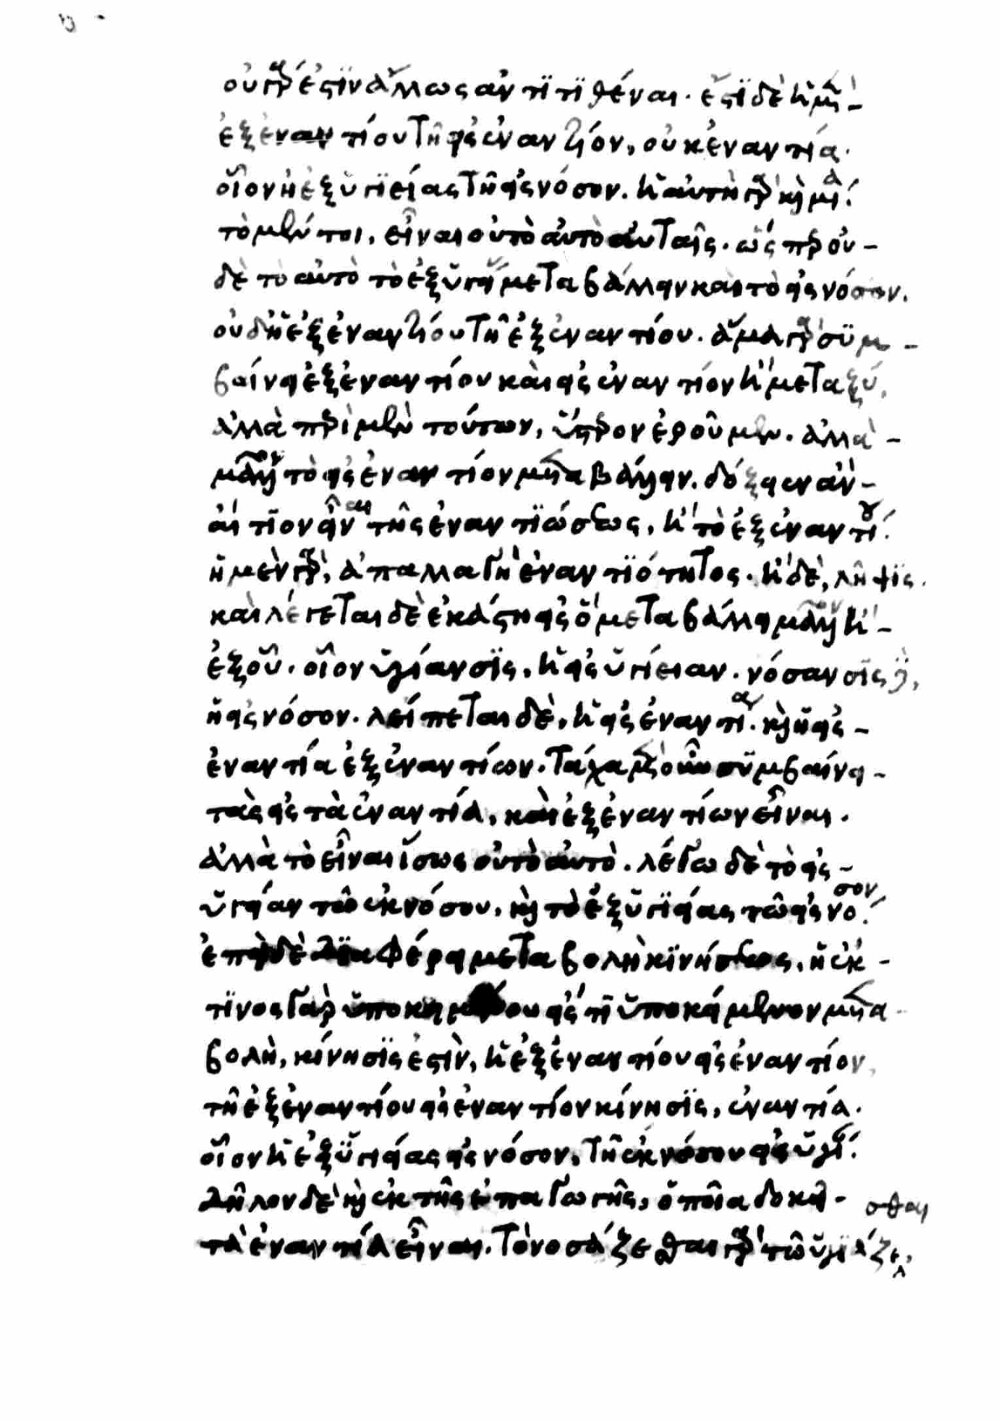 οὐ γάρ ἐστϊν ἄλλως ἀντϊτϊθέναι· ἔστϊ δὲ ἡ μὲν
ἐξ ἐναντίου τῆ εἰς ἐναντίον, οὐκ ἐναντία·
οἷον ἡ ἐξ ὑγϊείας τῆ εἰς νόσον. ἡ αὐτὴ γὰρ καὶ μία·
τὸ μέντοι, εἶναι οὐ τὸ αὐτὸ αὐταῖς· ὥσπερ οὐ-
δὲ τὸ αὐτὸ τὸ ἐξ ὑγιείας μεταβάλλειν καὶ τὸ εἰς νόσον.
οὐδ' ἡ ἐξ ἐναντίου τῆ ἐξ ἐναντίου· ἅμα γὰρ συμ-
βαίνει ἐξ ἐναντίου καὶ εἰς ἐναντίον ἢ μεταξύ.
ἀλλὰ περὶ μὲν τούτων, ὕστερον ἐροῦμεν. ἀλλὰ
μᾶλλον τὸ εἰς ἐναντίον μεταβάλλειν. δόξειεν ἂν
αἴτιον εἶναι τῆς ἐναντϊώσεως, ἢ τὸ ἐξ ἐναντίου·
ἡ μὲν γὰρ, ἀπαλλαγὴ ἐναντϊότητος· ἡ δὲ, λῆψϊς.
καὶ λέγεται δὲ ἑκάστη εἰς ὃ μεταβάλλει μᾶλλον ἢ
ἐξ οὗ. οἷον ὑγίανσϊς, ἡ εἰς ὑγίειαν. νόσανσϊς δὲ,
ἡ εἰς νόσον. λείπεται δὲ, ἡ εἰς ἐναντία. καὶ ἡ εἰς
ἐναντία ἐξ ἐναντίων. τάχα μὲν οὖν συμβαίνει
τὰς εἰς τὰ ἐναντία, καὶ ἐξ ἐναντίων εἶναι.
ἀλλὰ τὸ εἶναι ἴσως οὐ τὸ αὐτὸ. λέγω δὲ τὸ εἰς
ὑγείαν τῶ ἐκ νόσου, καὶ τὸ ἐξ ὑγϊείας τῶ εἰς νόσον.
ἐπεὶ δὲ διαφέρει μεταβολὴ κϊνήσεως, ἡ ἔκ
τϊνος γὰρ ὑποκειμένου εἴς τϊ ὑποκείμενον μετα-
βολὴ, κίνησϊς ἐστὶν, ἡ ἐξ ἐναντίου εἰς ἐναντίον
τῆ ἐξ ἐναντίου εἰς ἐναντίον κίνησϊς, ἐναντία.
οἷον ἡ ἐξ ὑγϊείας εἰς νόσον, τῆ ἐκ νόσου εἰς ὑγί.
δῆλον δὲ καὶ ἐκ τῆς ἐπαγωγῆς, ὁποῖα δοκεῖ
τὰ ἐναντία εἶναι. τὸ νοσάζεσθαι γὰρ τῶ ὑγϊάζεσθαι